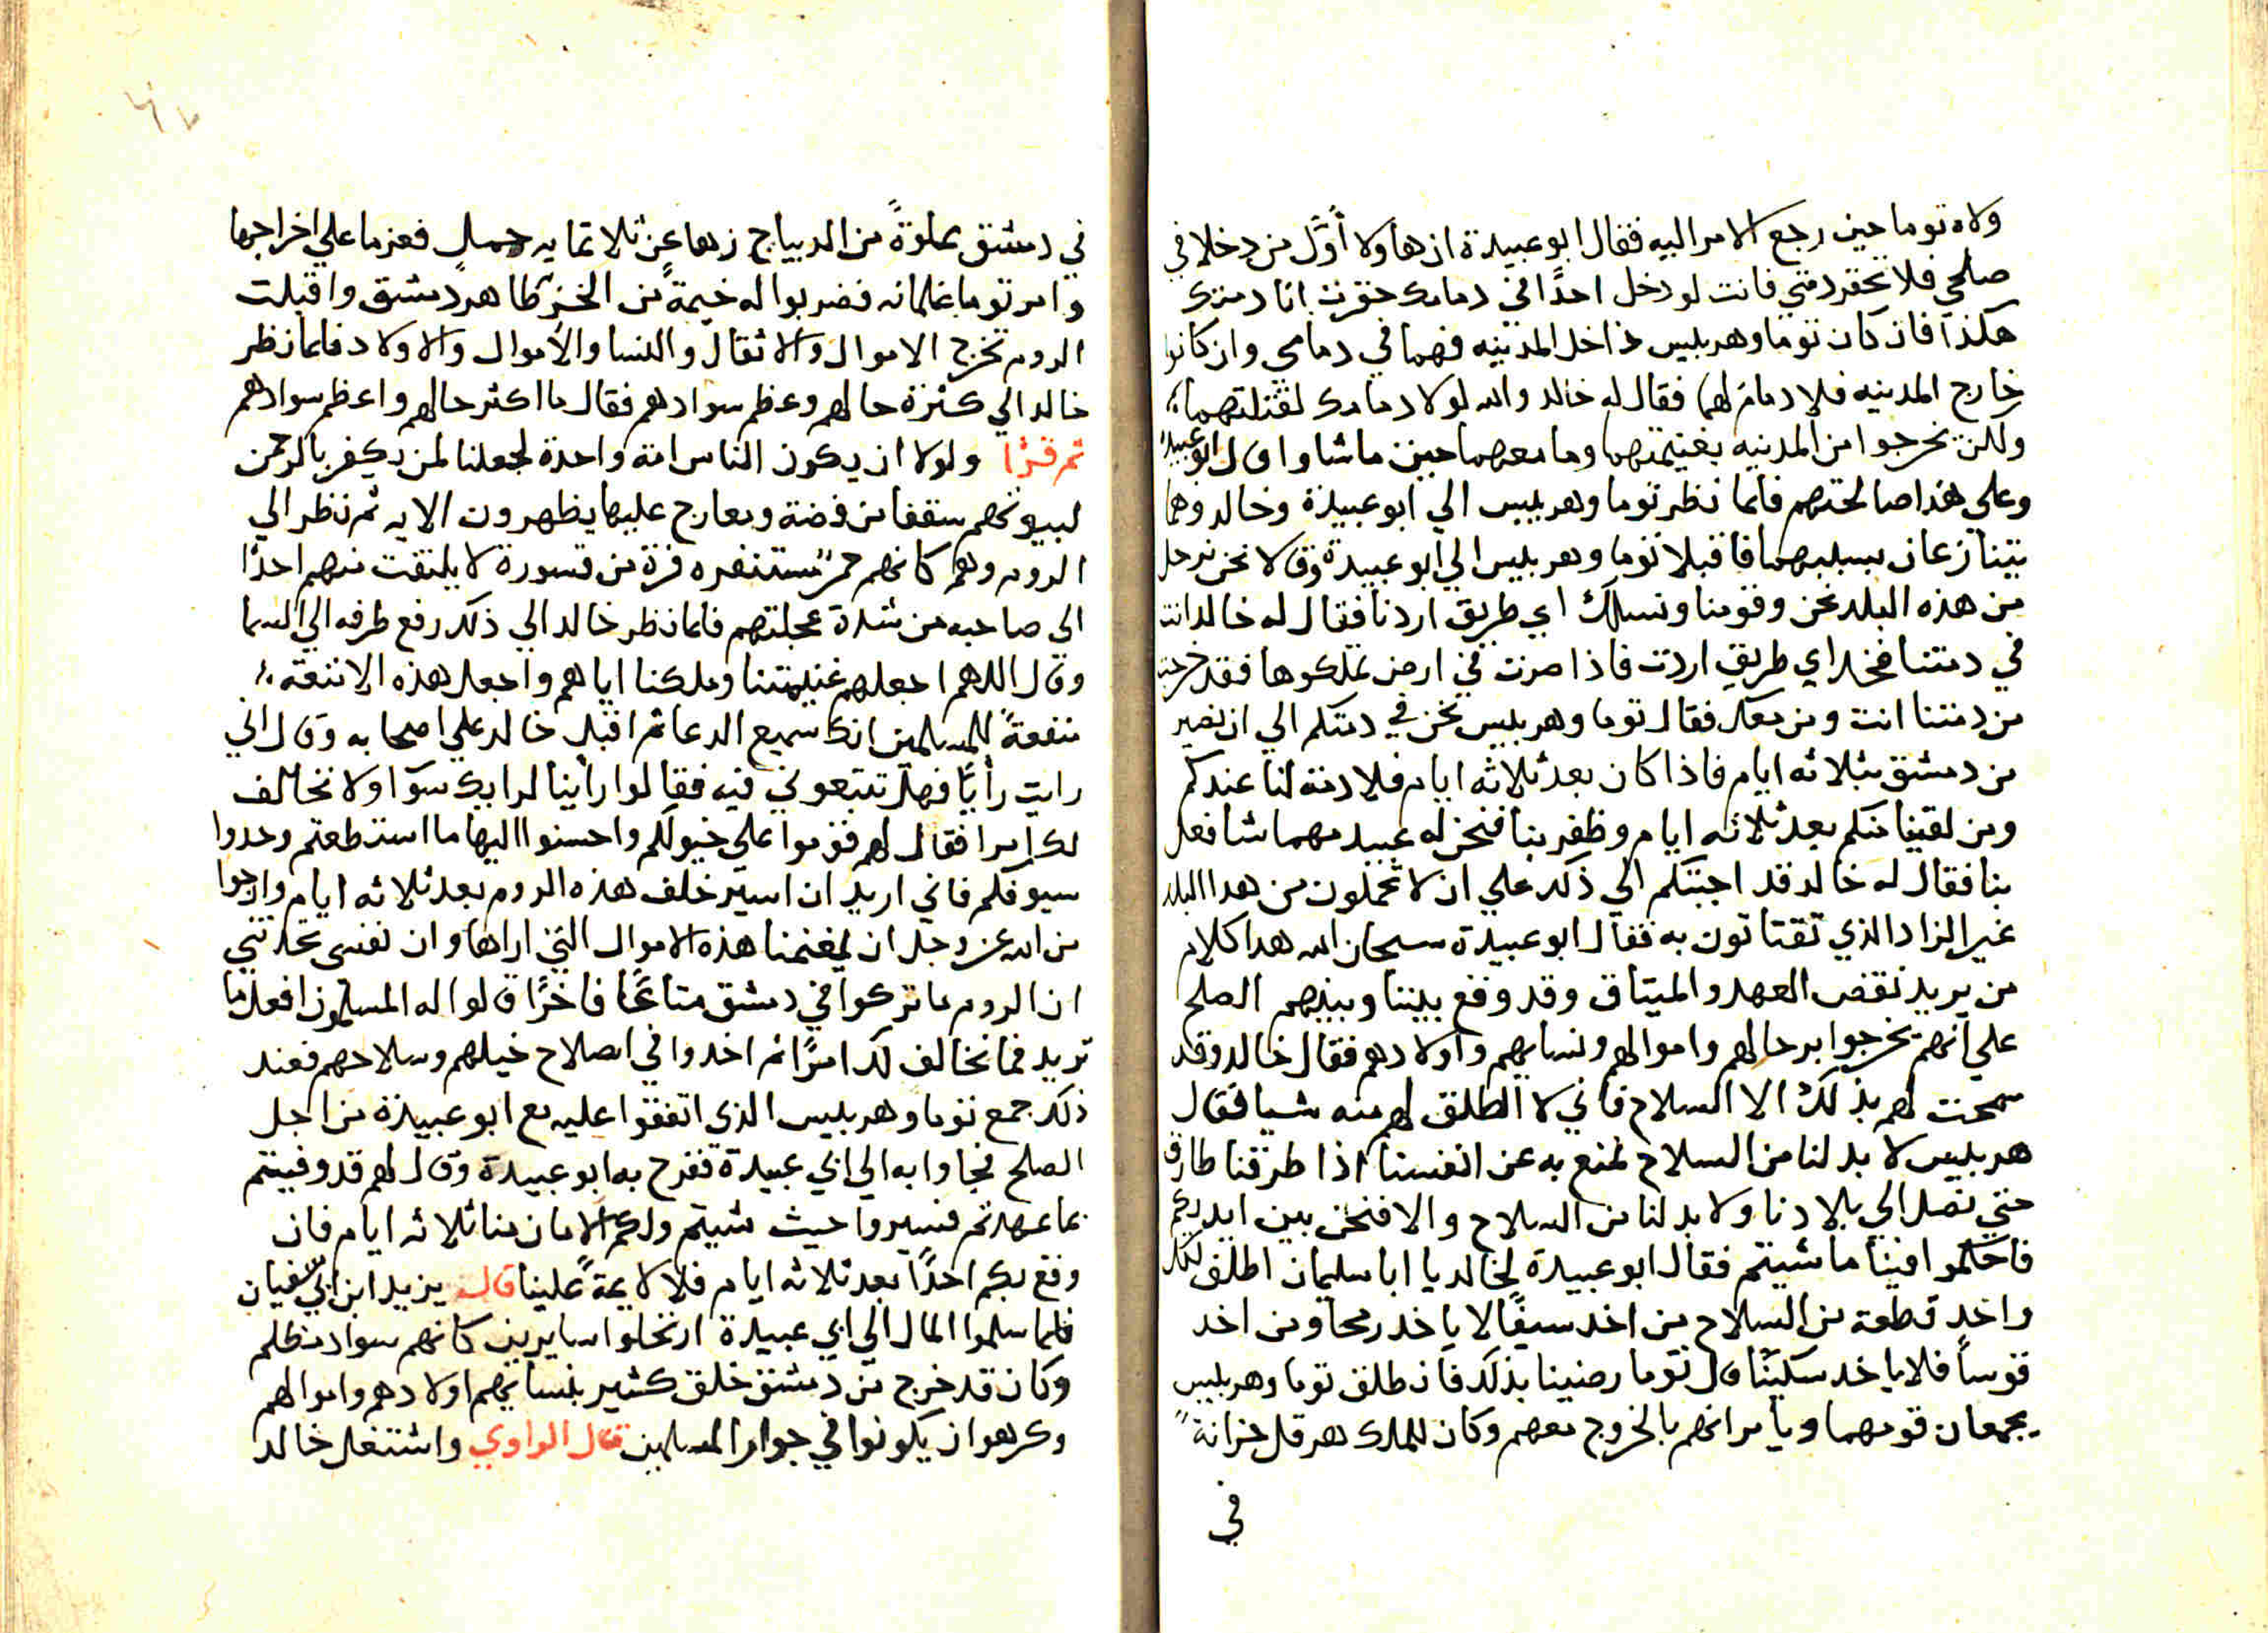 ولاه توما حين رجع الامر اليه فقال ابو عبيدة ان هاولا أوّل من دخلا في
صلحي فلا تحقر ذمتي فانت لو دخل احدًا في دمامك حقرت انا دمتك
هكذا فان كان توما وهربليس داخل المدينه فهما في دمامي وان كانوا
خارج المدينه فلا دمام لهما فقال له خالد والله لولا دمامك لقتلتهما
ولكن نخرجوا من المدينه بغنيمتهما وما معهما حين ما شاوا قال ابو عبيدة
وعلي هذا صالحتهم فلما نظر توما وهربليس الي ابو عبيدة وخالد وهما
يتنازعان بسببهما فاقبلا توما وهربليس الي ابو عبيدة وقالا نحن نرحل
من هذه البلد نحن وقومنا ونسلك اي طريق اردنا فقال له خالد انت
في دمتنا فخذ اي طريق اردت فاذا صرت في ارض تملكوها فقد خرجت
من دمتنا انت ومن معك فقال توما وهربليس نحن في دمتكم الي ان نصير
من دمشق بثلاثه ايام فاذا كان بعد ثلاثه ايام فلا دمة لنا عندكم
ومن لقينا منكم بعد ثلاثه ايام وظفر بنا فنحن له عبيد مهما شا فعل
بنا فقال له خالد قد اجبتكم الي ذلك علي ان لا تحملون من هدا البلد
غير الزاد الذي تقتاتون به فقال ابو عبيدة سبحان الله هدا كلام
من يريد نقض العهد والميتاق وقد وقع بيننا وبينهم الصلح
علي انهم يخرجوا برحالهم واموالهم ونسايهم واولادهم فقال خالد وقد
سمحت لهم بذلك الا السلاح فاني لا اطلق لهم منه شيا فقال
هربليس لا بد لنا من السلاح نمنع به عن انفسنا اذا طرقنا طارق
حتي نصل الي بلادنا ولا بد لنا من السلاح والا فنحن بين ايديكم
فاحكموا فينا ما شيتم فقال ابو عبيدة لخالد يا ابا سليمان اطلق لكل
واخد قطعة من السلاح من اخد سيفًا لا ياخد رمحا ومن اخد
قوساً فلا ياخد سكينًا قال توما رضينا بذلك فانطلق توما وهربليس
يجمعان قومهما ويأمرانهم بالخروج معهم وكان للملك هرقل خزانةً
في
في دمشق مملوةً من الديباج زهما عن ثلاتمايه جمل فعزما علي اخراجها
وامر توما غلمانه فضربوا له خيمةً من الخز ظاهر دمشق واقبلت
الروم تخرج الاموال والاثقال والنسا والأموال والاولاد فلما نظر
خالد الي كثرة حالهم وعظم سوادهم فقال ما اكثر حالهم واعظم سوادهم
ثم قرا ولولا ان يكون الناس امة واحدة لجعلنا لمن يكفر بالرحمن
لبيوتهم سقفا من فضة ومعارج عليها يظهرون الايه ثم نظر الي
الروم وهم كانهم حمر مستنفره فرة من قسورة لا يلتفت منهم احدًا
الي صاحبه من شدة عجلتهم فلما نظر خالد الي ذلك رفع طرفه الي السما
وقال اللهم اجعلهم غنيمتنا وملكنا اياهم واجعل هذه الامتعة
منفعةً للمسلمين انك سميع الدعا ثم اقبل خالد علي اصحابه وقال اني
رايت رأيًا فهل تتبعوني فيه فقالوا رأينا لرايك سوا ولا نخالف
لك امرا فقال لهم قوموا علي خيولكم واحسنوا اليها ما استطعتم وحدوا
سيوفكم فاني اريد ان اسير خلف هذه الروم بعد ثلاثه ايام وارجوا
من الله عز وجل ان يغنمنا هذه الاموال التي اراها وان نفسي تحدثني
ان الروم ما تركوا في دمشق متاعًا فاخرًا قالوا له المسلمون افعل ما
تريد فما نخالف لك امرًا ثم اخدوا في اصلاح خيلهم وسلاحهم فعند
ذلك جمع توما وهربليس الذي اتفقوا عليه مع ابو عبيدة من اجل
الصلح فجاوا به الي ابي عبيدة ففرح به ابو عبيدة وقال لهم قد وفيتم
بما عهدتم فسيروا حيث شيتم ولكم الامان منا ثلاثه ايام فان
وقع بكم احدًا بعد ثلاثه ايام فلا لايمةً علينا قال يزيد ابن ابي سفيان
فلما سلموا المال الي ابي عبيدة ارتحلوا سايرين كانهم سواد مظلم
وكان قد خرج من دمشق خلق كثير بنسايهم اولادهم واموالهم
وكرهوا ان يكونوا في جوار المسلمين قال الراوي واشتغل خالد